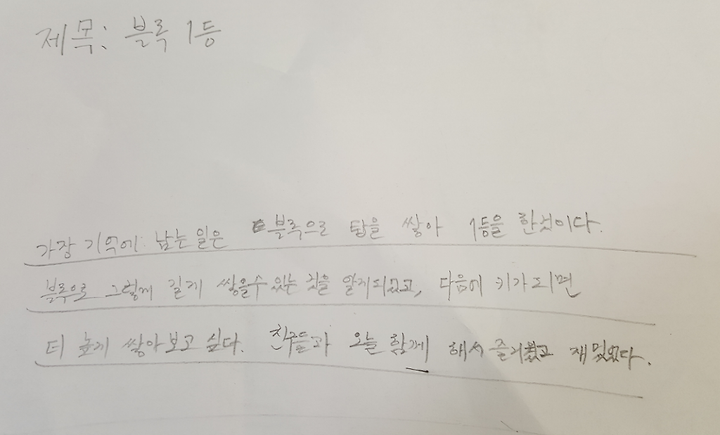 제목: 블록 1등
가장 기억에 남는 일은 블록으로 탑을 쌓아 1등을 한것이다.
블록으로 그렇게 길게 쌓을수 있는 것을 알게되었고, 다음에 키가 되면
더 높게 쌓아보고 싶다. 친구들과 오늘 함께 해서 즐거웠고 재밌었다.